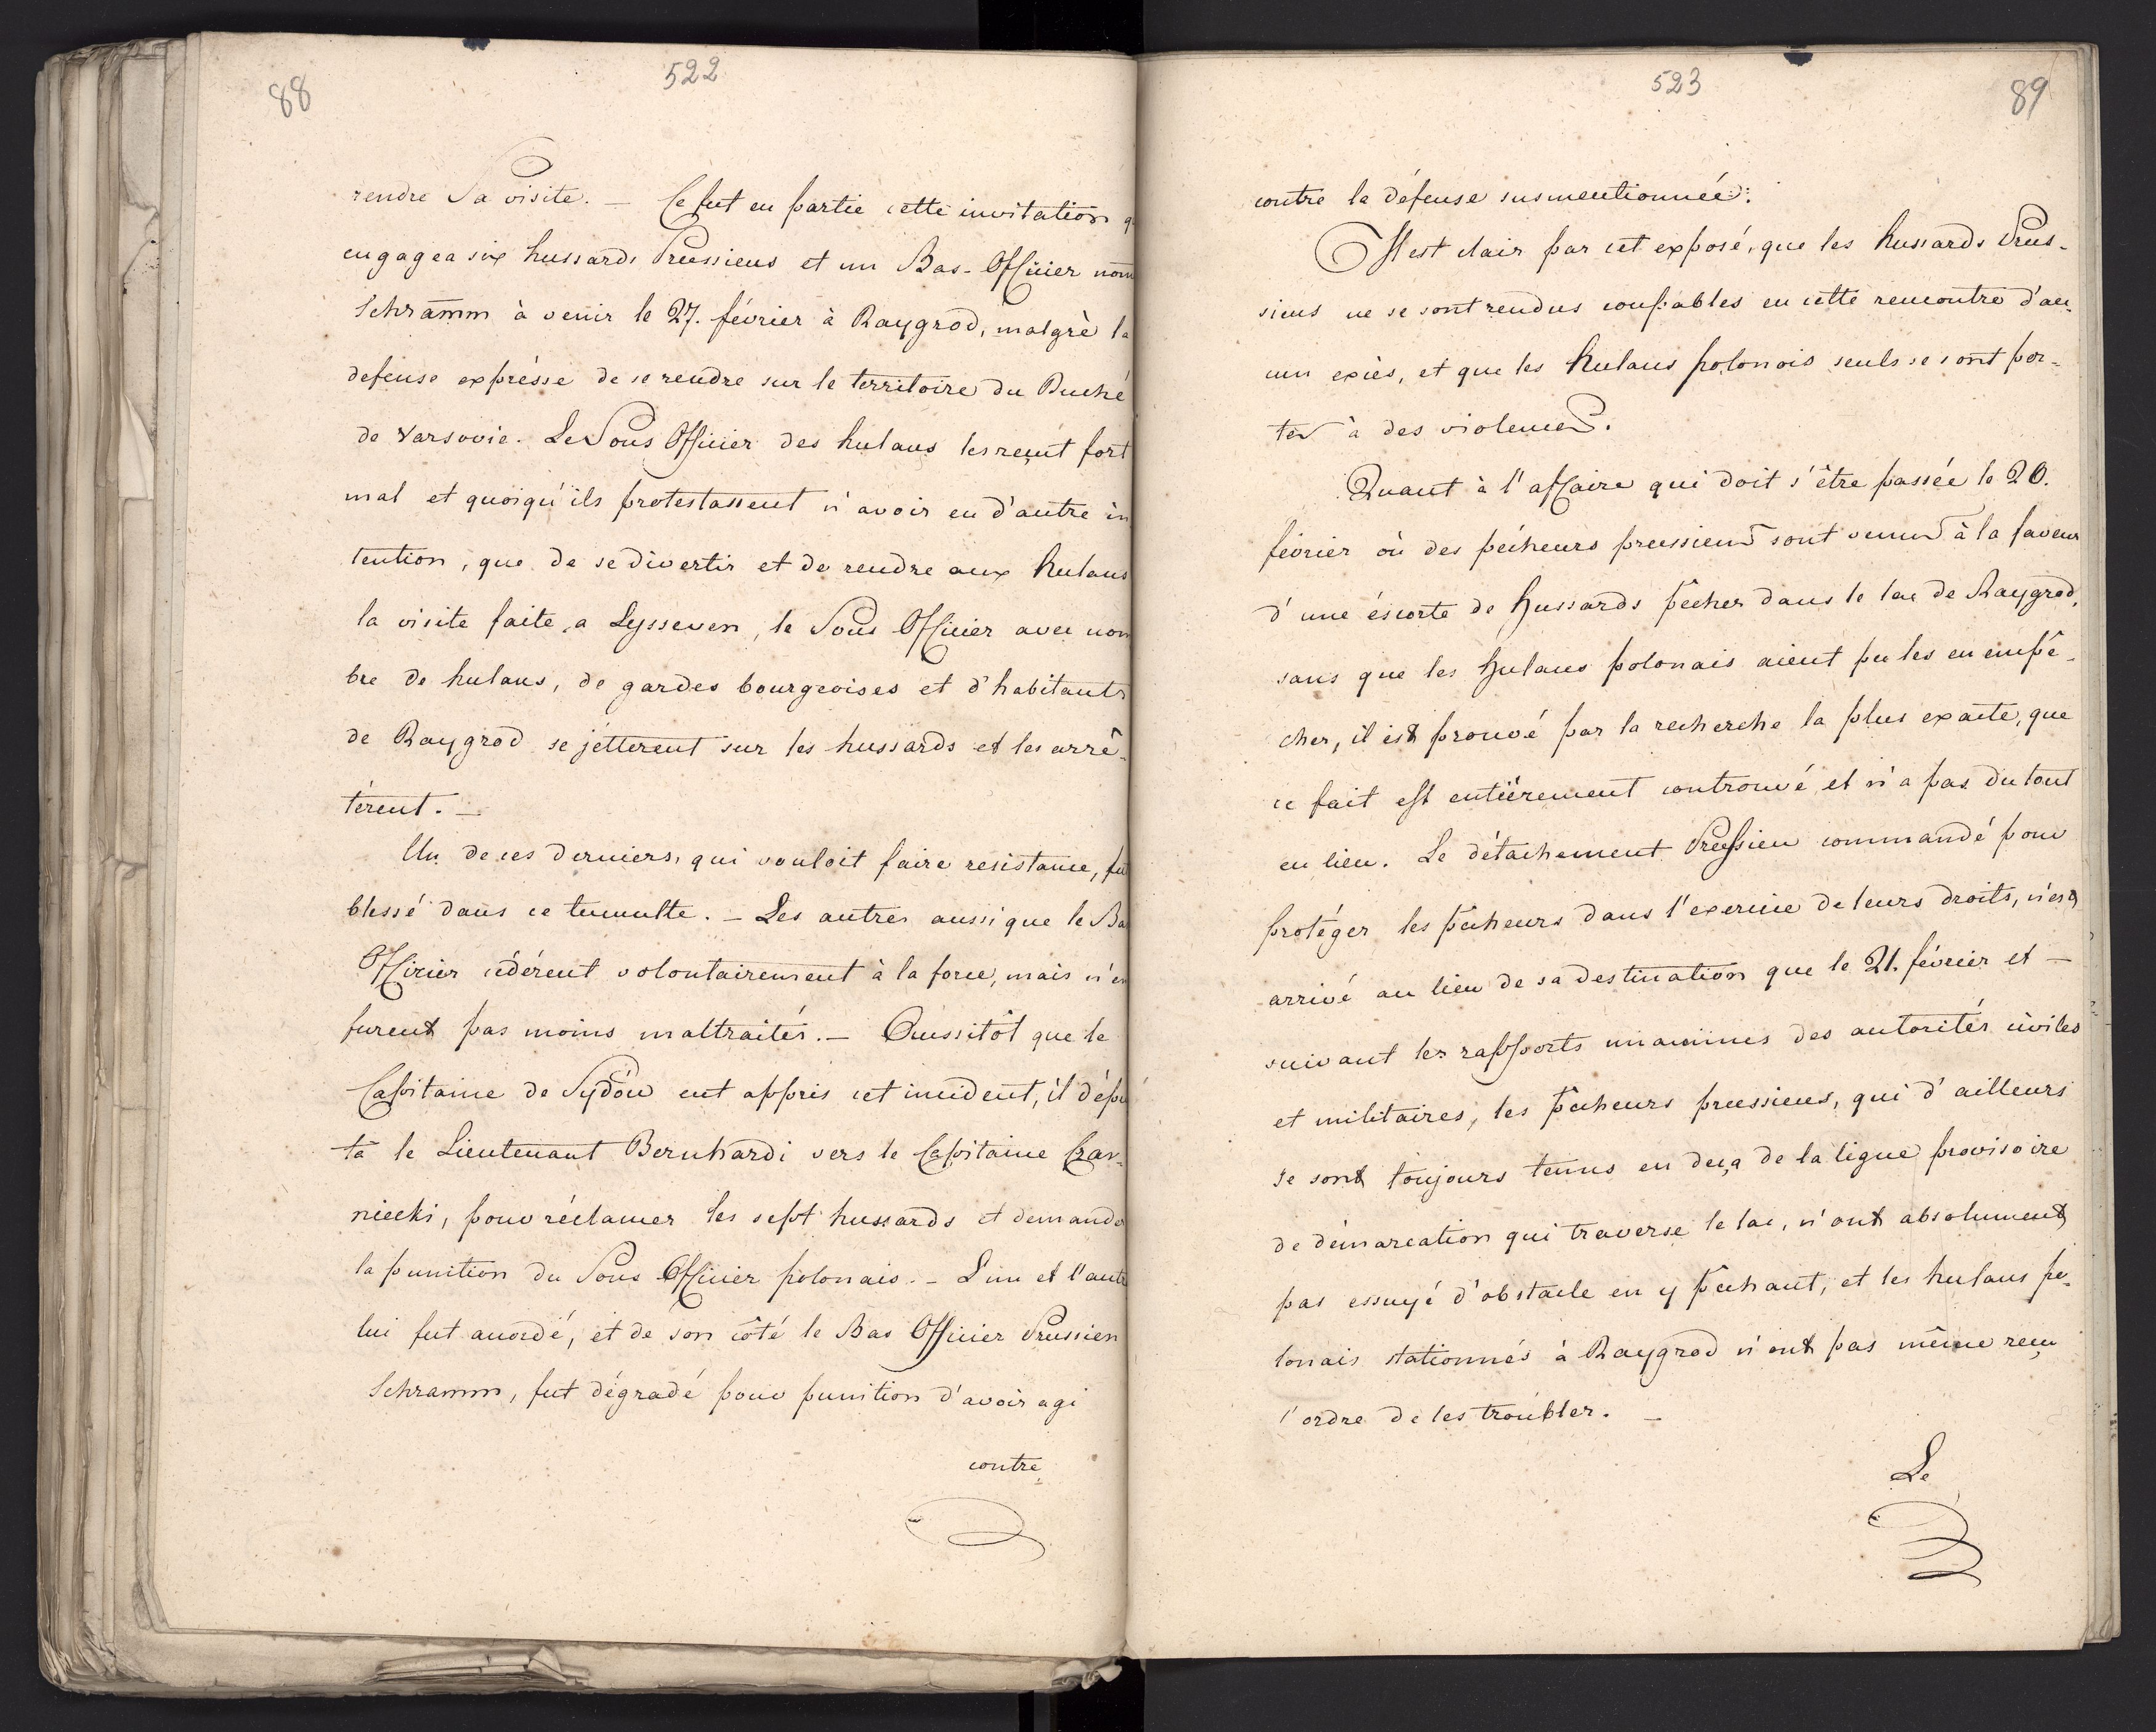 88
522
rendre Sa visite. — Ce fut en partie cette invitation q
engagea six hussards Prussiens et un Bas-Officier nom
Schramm à venir le 27. février à Raygrod, malgrè la
defense exprésse de se rendre sur le territoire du Duché
de Varsovie. Le Sous Officier des hulans les reçut fort
mal et quoiqu'ils protestassent n'avoir eu d'autre in
tention, que de se divertir et de rendre aux hulans
la visite faite a Lysseven, le Sous Officier avec nom
bre de hulans, de gardes bourgeoises et d'habitants
de Raygrod se jetterent sur les hussards et les arrê-
térent. —
Un de ces derniers, qui vouloit faire resistance, fut
blessé dans ce tumulte. — Les autres aussi que le Ba
Officier cédérent volontairement à la force, mais n'en
furent pas moins maltraités. — Aussitôt que le
Capitaine de Sydow eut appris cet incident, il dépu
ta le Lieutenant Bernhardi vers le Capitaine Czar-
niecki, pour réclamer les sept hussards et demander
la punition du Sous Officier polonais. — L'un et l'autre
lui fut accordé, et de son côté le Bas Officier Prussien
Schramm, fut dégradé pour punition d'avoir agi
contre
523
89
contre la défense susmentionnée.
Il est clair par cet exposé, que les hussards Prus-
siens ne se sont rendus coupables en cette rencontre d'au-
cun excès, et que les hulans polonois seuls se sont por-
tés à des violences.
Quant à l'affaire qui doit s'être passée le 20.
février où des pécheurs prussiens sont venus à la faveur
d'une éscorte de Hussards pêcher dans le lac de Raygrod,
sans que les Hulans polonais aient pu les en empê-
cher, il est prouvé par la recherche la plus exacte, que
ce fait est entiérement controuvé et n'a pas du tout
eu lieu. Le détachement Prussien commandé pour
protéger les pêcheurs dans l'exercice de leurs droits, n'est
arrivé au lieu de sa destination que le 21. février et —
suivant les rapports unanimes des autorités civiles
et militaires, les pêcheurs prussiens, qui d'ailleurs
se sont toujours tenus en deça de la ligne provisoire
de démarcation qui traverse le lac, n'ont absolument
pas essuyé d'obstacle en y pêchant, et les hulans po-
lonais stationnés à Raygrod n'ont pas même reçu
l'ordre de les troubler. —
Le